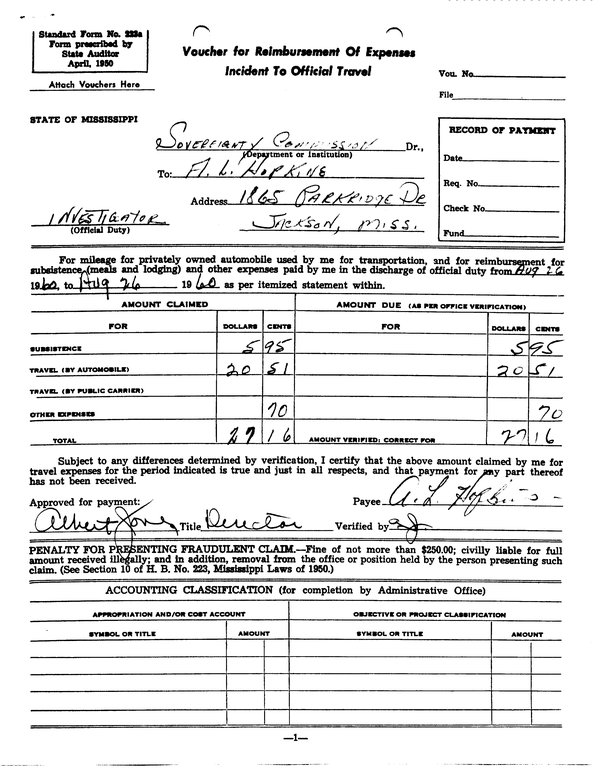 Standard Form No. 223a
Form prescribed by
State Auditor
April, 1950
Attach Vouchers Here
Voucher for Reimbursement Of Expenses
Incident To Official Travel
Vou. No.
File
STATE OF MISSISSIPPI
SOVEREIGNTY COMMISSION Dr.,
(Department or Institution)
To: A. L. HOPKINS
Address 1865 PARKRIDGE DR
JACKSON, MISS.
INVESTIGATOR
(Official Duty)
RECORD OF PAYMENT
Date
Req. No.
Check No.
Fund
For mileage for privately owned automobile used by me for transportation, and for reimbursement for
subsistence (meals and lodging) and other expenses paid by me in the discharge of official duty from Aug 26
1960, to Aug 26 1960 as per itemized statement within.
AMOUNT CLAIMED AMOUNT DUE (AS PER OFFICE VERIFICATION)
FOR DOLLARS CENTS FOR DOLLARS CENTS
SUBSISTENCE 5 95 5 95
TRAVEL (BY AUTOMOBILE) 20 51 20 51
TRAVEL (BY PUBLIC CARRIER)
OTHER EXPENSES 70 70
TOTAL 27 16 AMOUNT VERIFIED: CORRECT FOR 27 16
Subject to any differences determined by verification, I certify that the above amount claimed by me for
travel expenses for the period indicated is true and just in all respects, and that payment for any part thereof
has not been received.
Approved for payment: Payee A. L. Hopkins
Albert Jones Title Director Verified by
PENALTY FOR PRESENTING FRAUDULENT CLAIM.—Fine of not more than $250.00; civilly liable for full
amount received illegally; and in addition, removal from the office or position held by the person presenting such
claim. (See Section 10 of H. B. No. 223, Mississippi Laws of 1950.)
ACCOUNTING CLASSIFICATION (for completion by Administrative Office)
APPROPRIATION AND/OR COST ACCOUNT OBJECTIVE OR PROJECT CLASSIFICATION
SYMBOL OR TITLE AMOUNT SYMBOL OR TITLE AMOUNT
—1—